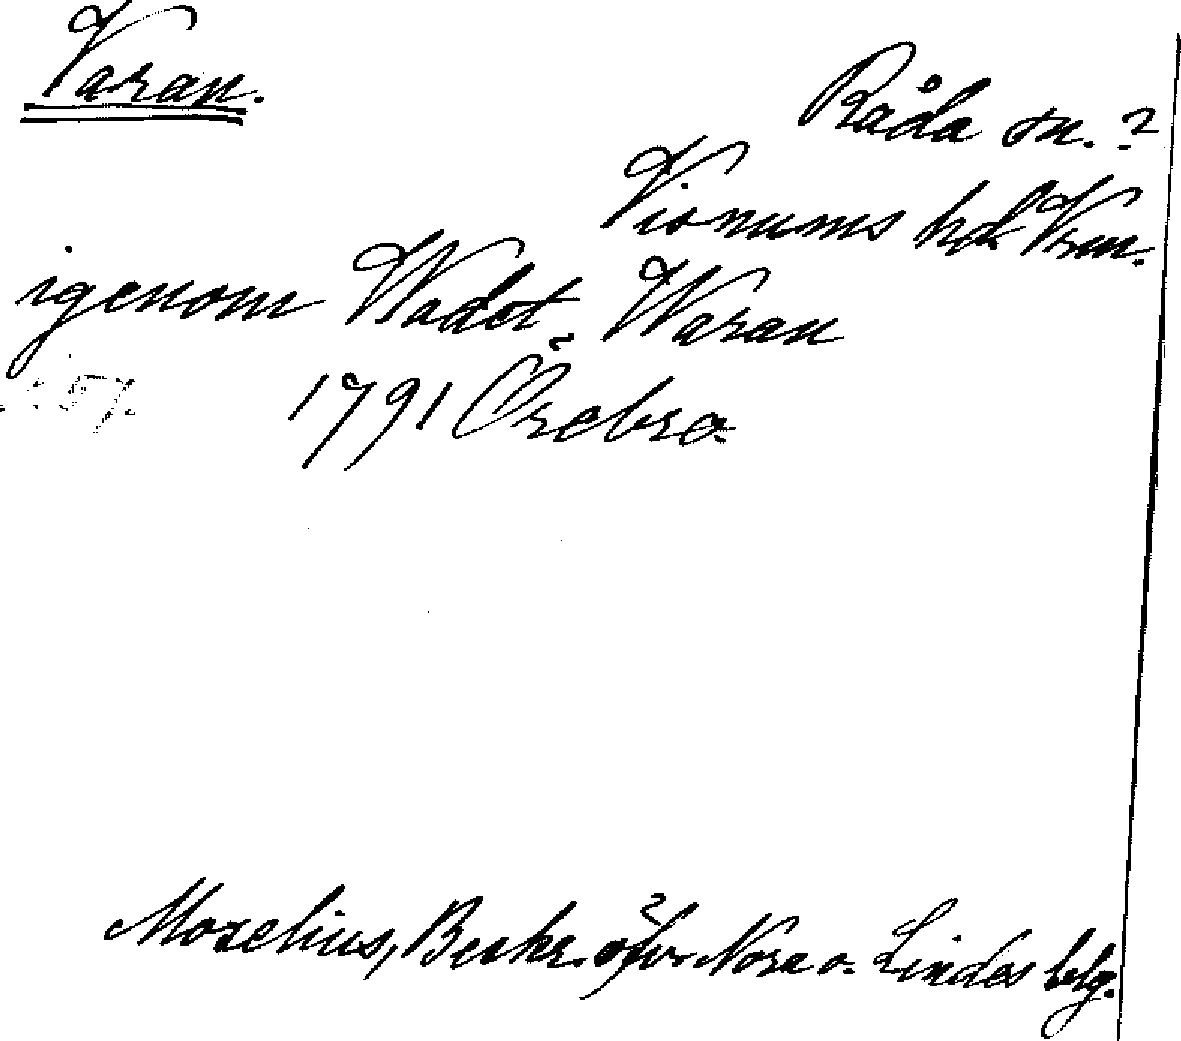 Varan.
Råda sn.?
Visnums hd. Vrm.
igenom Wadet, Waran
1791 Örebro.
Morelius, Beskr. öfv. Nora o. Lindes bslg.